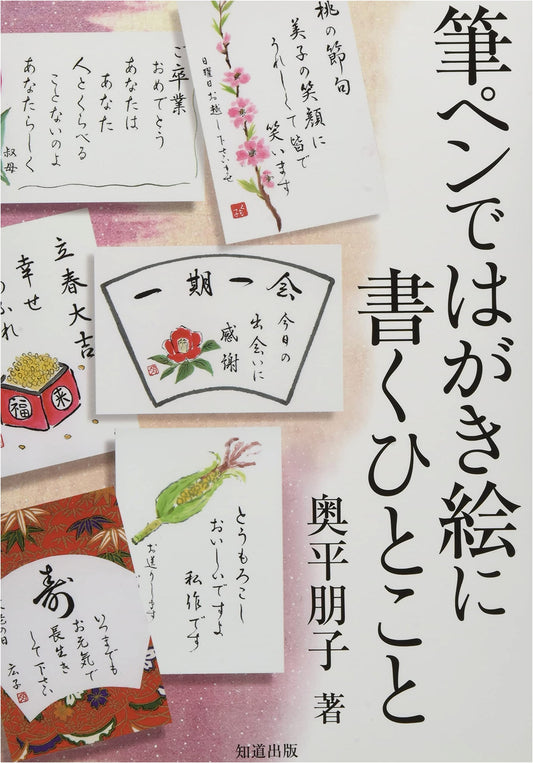 筆ペンではがき絵に
書くひとこと
奥平朋子 著
知道出版
桃の節句
美子の笑顔に
うれしくて皆で
笑います
日曜日お越し下さいませ
ご卒業
おめでとう
あなたは
あなた
人とくらべる
ことないのよ
あなたらしく
叔母
立春大吉
幸せ
福
来
一期一会
今日の
出会いに
感謝
とうもろこし
おいしいですよ
私作です
お送りします
寿
いつまでも
お元気で
長生き
して下さい
の日
広子